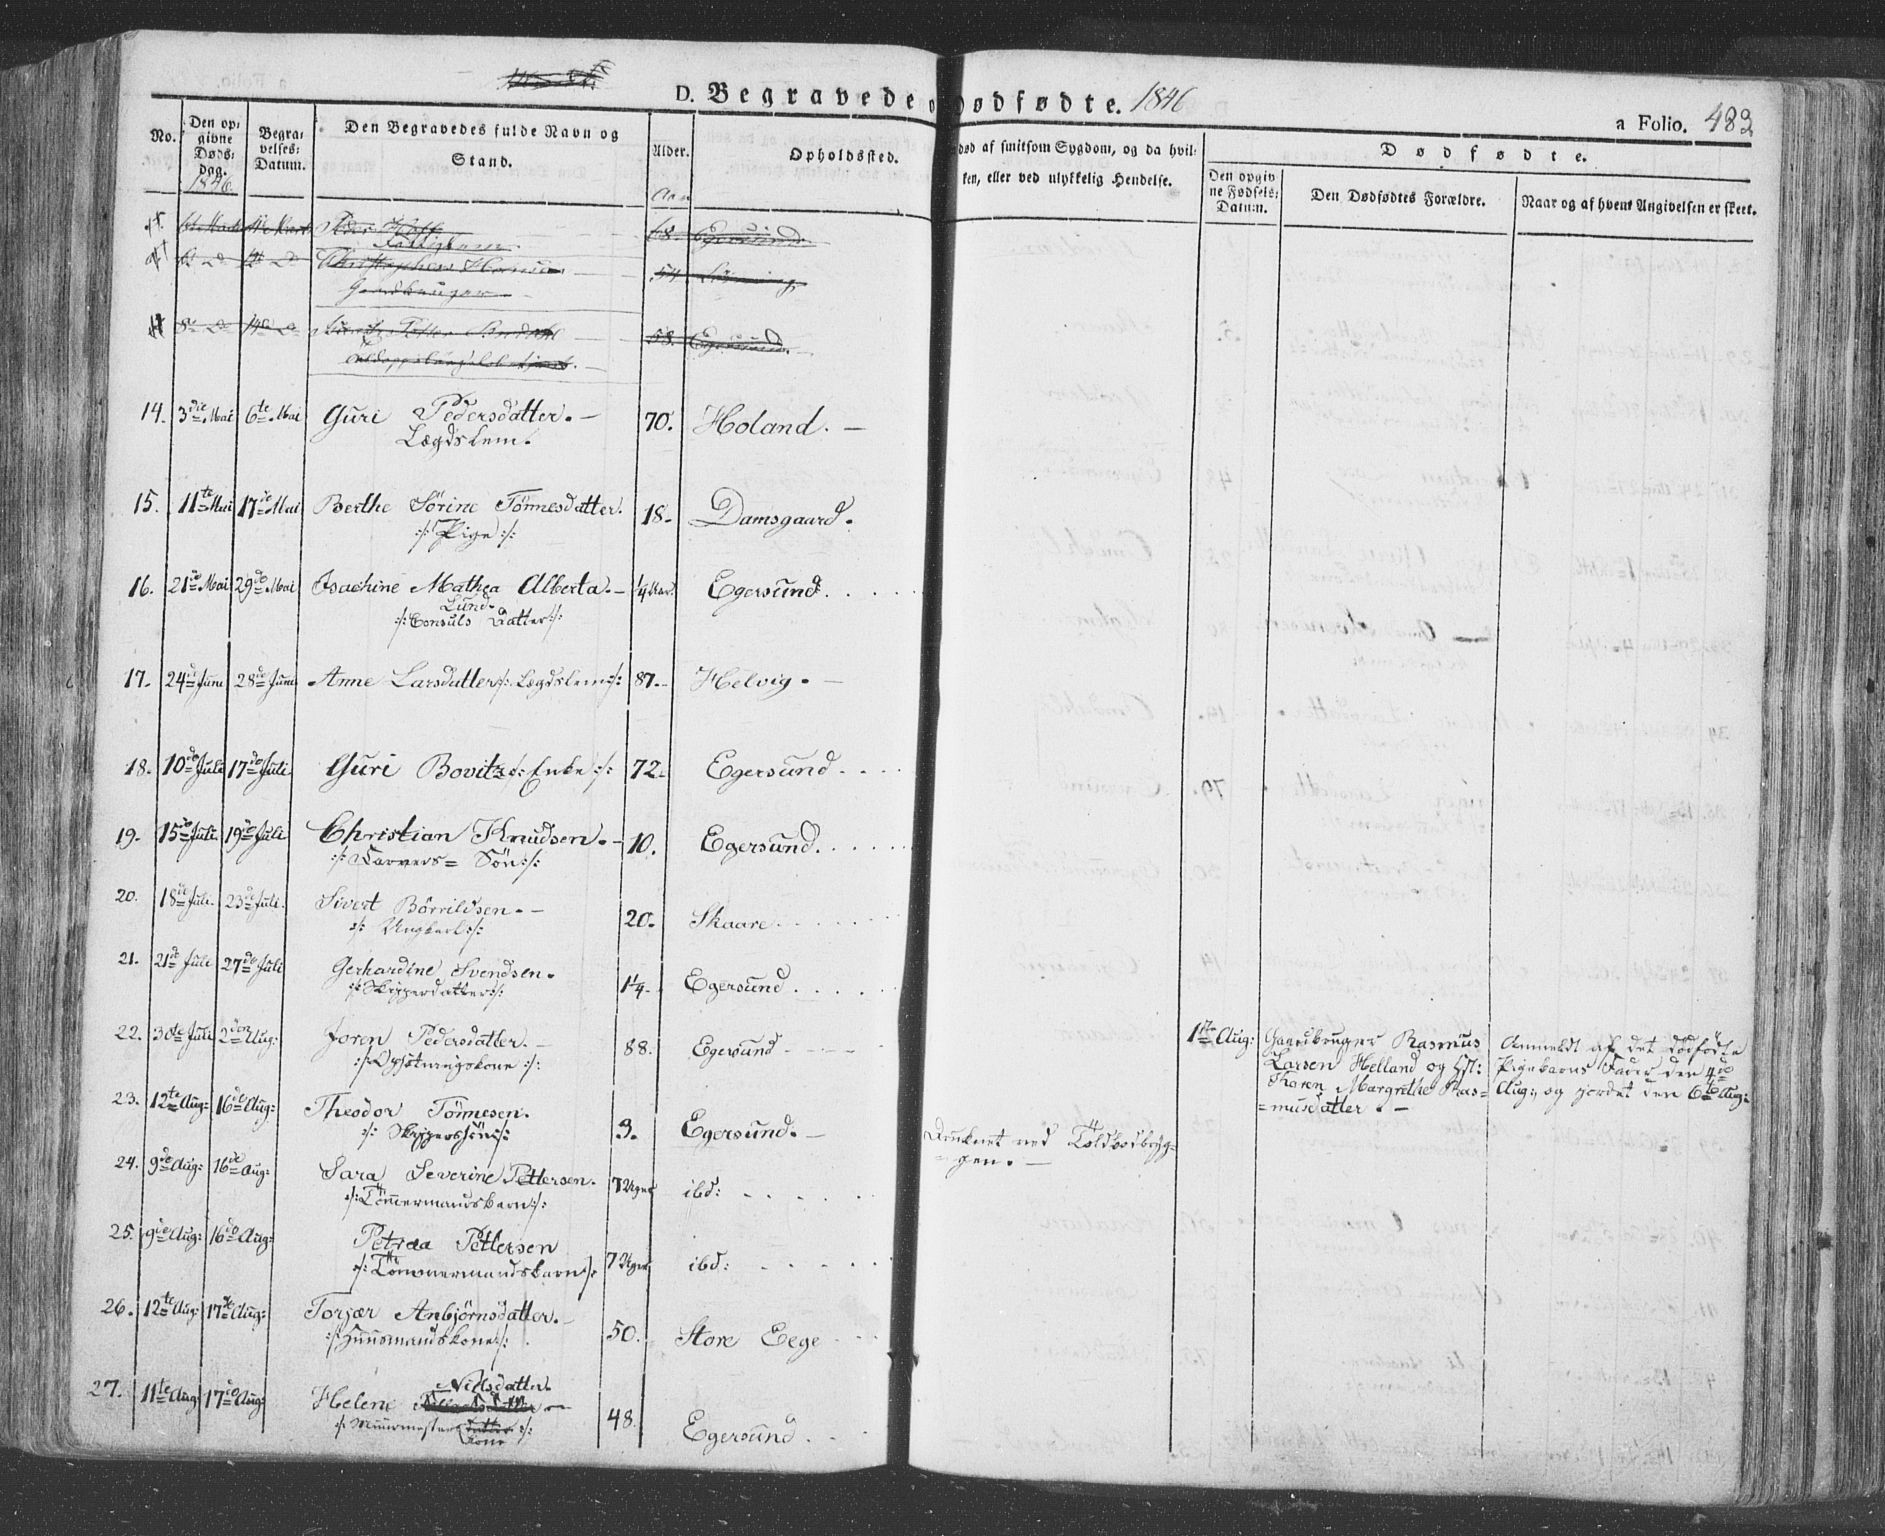 D. Begravede o Dødfødte. 1846
a Folio. 483
No.
Den opgivne Døds-Dag. 1846
Begravelses-Datum.
Den Begravedes fulde Navn og Stand.
Alder. Aar
Opholdssted.
død af smitsom Sygdom, og da hvil-
ken, eller ved ulykkelig Hendelse.
Dødfødte.
Den opgivne Fødsels-Datum.
Den Dødfødtes Forældre.
Naar og af hvem Angivelsen er skeet.
68. Egersund
54
58. Egersund
14. 3die Mai 6te Mai Guri Pedersdatter. — 70. Holand. —
Lægdslem.
15. 11te Mai 17de Mai Berthe Sørine Tönnesdatter. 18. Damsgaard.
:/: Pige :/:
16. 21de Mai 29de Mai Isachine Mathea Alberta. — 1/4 Aar. Egersund.
Lund.
:/: Consuls Datter :/:
17. 24de Juni 28de Juni Anne Larsdatter :/: Lægdslem :/: 87. Helvig. —
18. 10de Juli 17de Juli Guri Bovitz :/: Enke :/: 72. Egersund
19. 15de Juli 19de Juli Christian Knudsen. — 10. Egersund.
:/: Farvers= Sön :/:
20. 18de Juli 23de Juli Sivert Börrildsen. — 20. Skaare.
:/: Ungkarl :/:
21. 21de Juli 27de Juli Gerhardine Svendsen. 1 1/4. Egersund
:/: Skipperdatter :/:
22. 30te Juli 2den Aug: Joren Pedersdatter. — 88. Egersund
:/: Opsitningskone :/:
1ste Aug: Gaardbruger Rasmus
Larsen Helland og Hst:
Karen Margrethe Ras-
=musdatter. —
Anmeldt af det dödfödte
Pigebarns Fader den 4de
Aug:, og jordet den 6te Aug:
23. 12te Aug: 16de Aug: Theodor Tönnesen. 3. Egersund. —
:/: Skipperssön :/:
Druknet ved Toldbodbryg-
gen. —
24. 9de Aug: 16de Aug: Sara Severine Pettersen. 7 Uger ibd:
:/: Tömmermandsbarn :/:
25. 9de Aug: 16de Aug: Petraa Pettersen 7 Uger ibd:
:/: Tömmermandsbarn :/:
26. 12te Aug: 17de Aug: Torjær Anbjörnsdatter. — 50. Store Eege
:/: Huusmandskone :/:
27. 11te Aug: 17de Aug: Helene Nielsdatter. 48. Egersund
:/: Muurmester Kone :/: